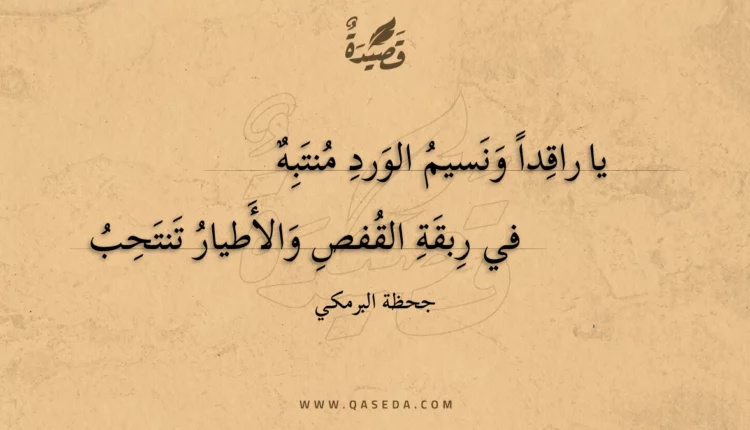 قَصِيدَةٌ
يا راقِداً وَنَسيمُ الوَردِ مُنتَبِهٌ
في رِبقَةِ القُفصِ وَالأَطيارُ تَنتَحِبُ
جحظة البرمكي
WWW.QASEDA.COM